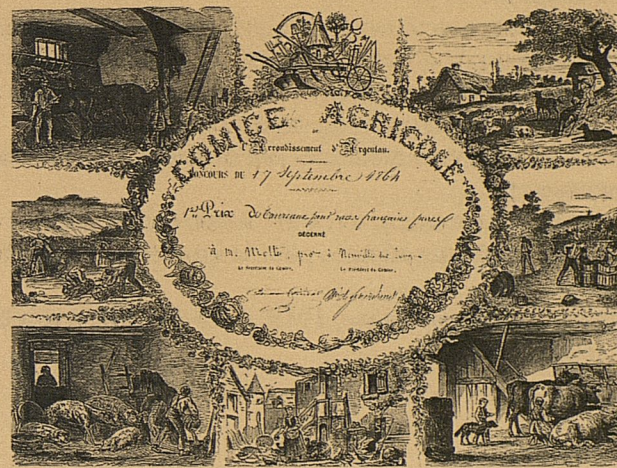 COMICE AGRICOLE
de
l'Arrondissement d'Argentan.
CONCOURS DU 17 Septembre 1864
1er Prix de taureaux pour races françaises pures
DÉCERNÉ
à M.
Le Secrétaire du Comice, Le Président du Comice,